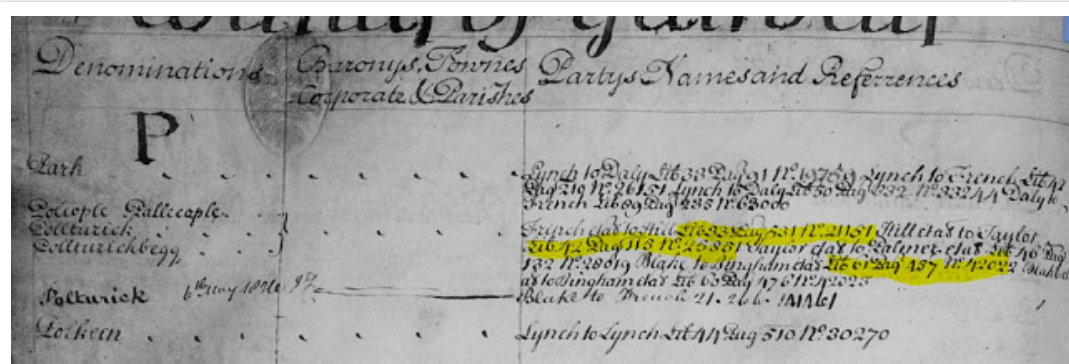 County of Galway
Denominations
Baronys, Townes
Corporate & Parishes
Partys Names and Referrences
P
Park
Lynch to Daly Lib 33 Pag 91 No. 19759 Lynch to French Lib 42
Pag 219 No. 26151 Lynch to Daly Lib 50 Pag 232 No. 33244 Daly to
French Lib 89 Pag 235 No. 63006
Pollturick
Pollturickbegg
French etal to Hill Lib 33 Pag 531 No. 21151 Hill etal to Taylor
Lib 42 Pag 113 No. 25831 Taylor etal to Palmer etal Lib 46 Pag
132 No. 28019 Blake to Bingham etal Lib 61 Pag 457 No. 42022 Blake et
al to Bingham etal Lib 63 Pag 476 No. 42023
Polturick
Blake to French 21. 266. 141461
Polkeen
Lynch to Lynch Lib 44 Pag 510 No. 30270